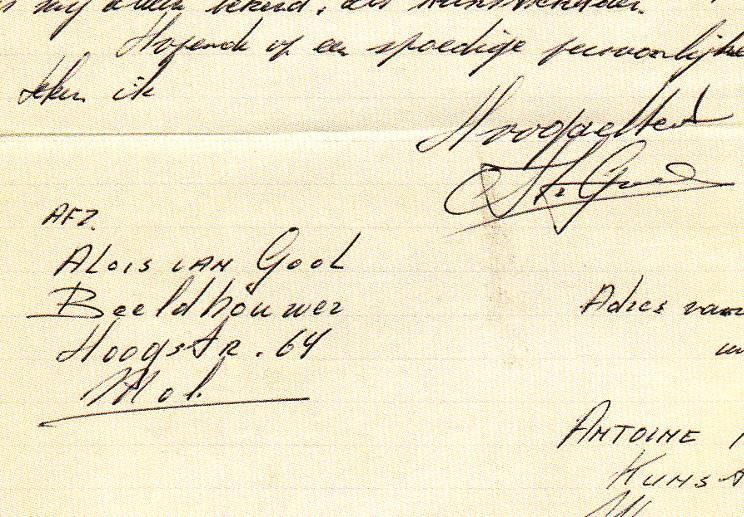 mij allen bekend, als kunstschilder.
Hopende op een spoedige persoonlijke
teken ik
Hoogachtend
AFZ.
ALOIS VAN GOOL
Beeldhouwer
HoogstR. 64
Mol.
Adres van
ANTOINE
KUNST